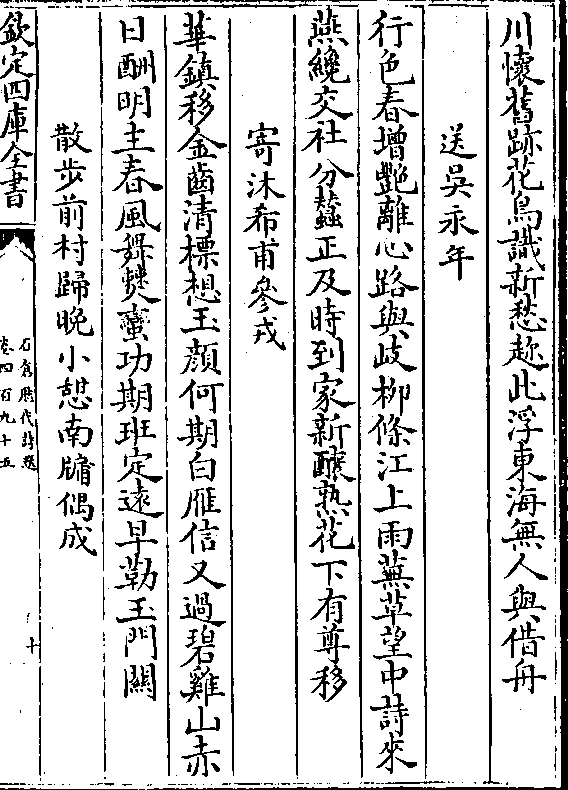 川懷舊跡花鳥識新愁趂此浮東海無人與借舟
送吳永年
行色春增艷離心路與岐柳條江上雨蕪草望中詩來
燕纔交社分蠶正及時到家新釀熟花下有尊移
寄沐希甫參戎
華鎮移金齒清標想玉顏何期白雁信又過碧雞山赤
日酬明主春風舞僰蠻功期班定遠早勒玉門關
散步前村歸晚小憩南牗偶成
欽定四庫全書
石倉歷代詩選
卷四百九十五
十